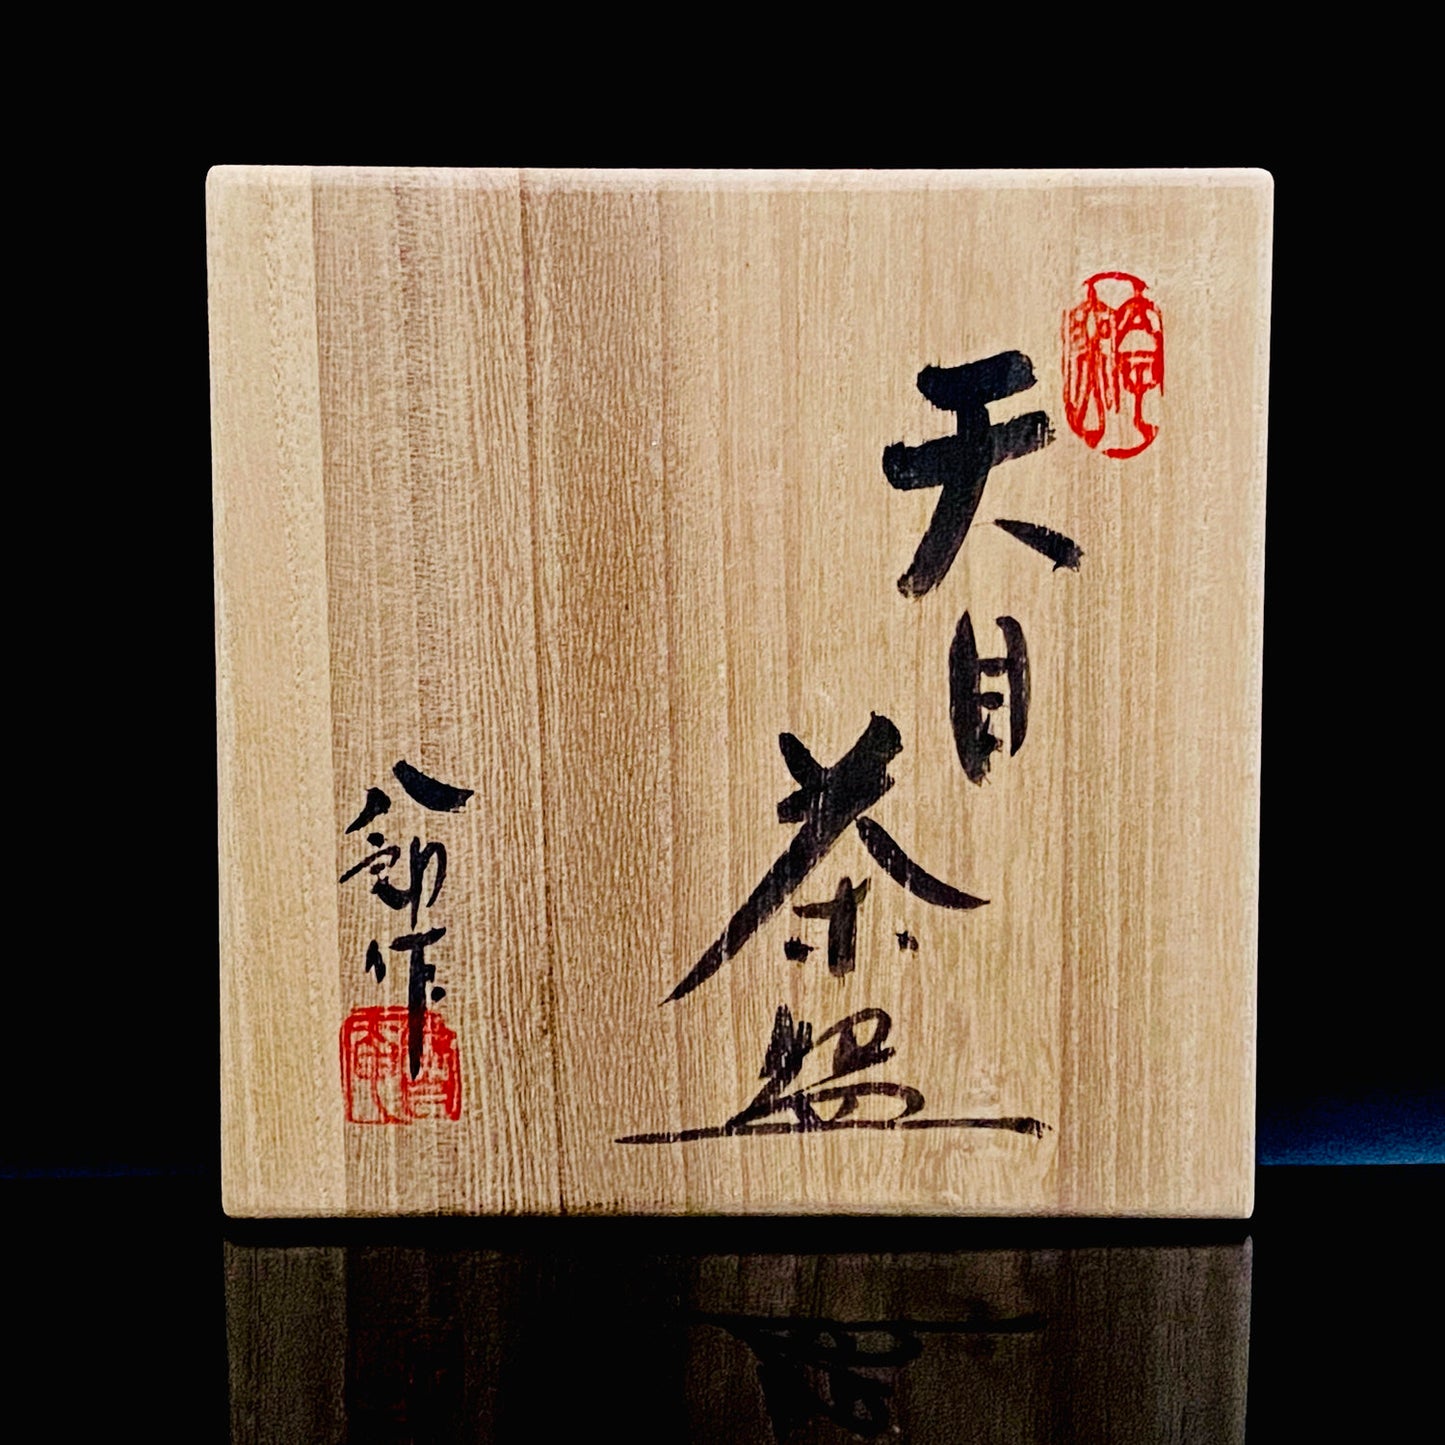 天目
茶盌
八郎作